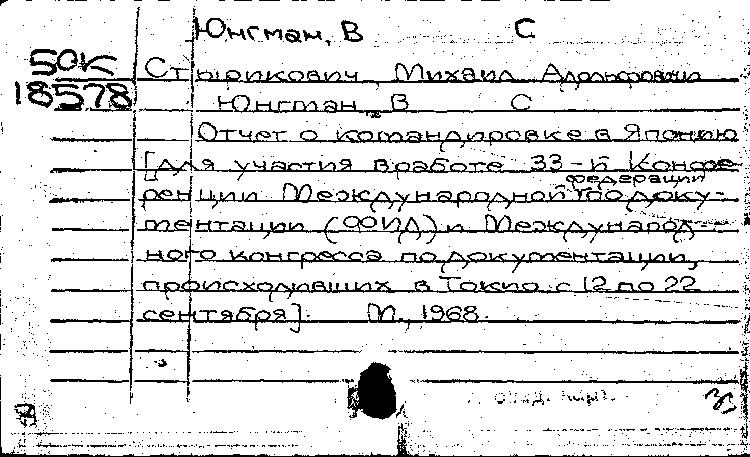 Юнгман, В С
50К
18578
Стырикович, Михаил Адольфович
Юнгман, В С
Отчет о командировке в Японию
[для участия в работе 33-й Конфе-
ренции Международной федерации по доку-
ментации (ФИД) и Международ-
ного конгресса по документации,
происходивших в Токио с 12 по 22
сентября]. М., 1968.